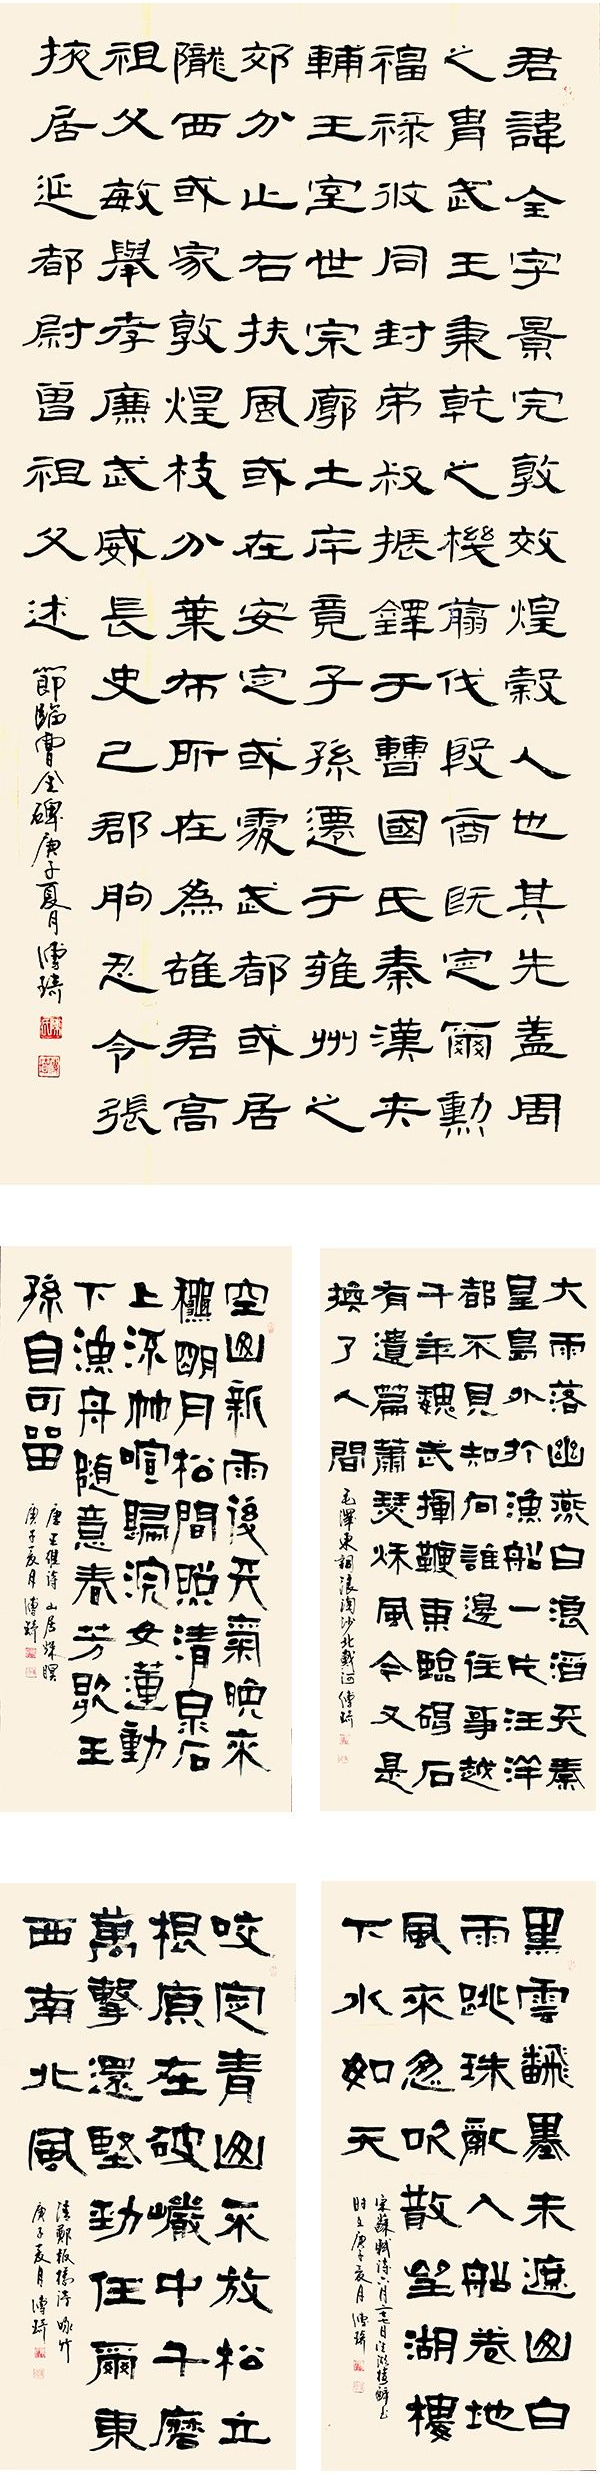 君諱全字景完敦效煌穀人也其先蓋周
之胄武王秉乾之機翦伐殷商既定爾勳
福祿攸同封弟叔振鐸于曹國氏秦漢夾
輔王室世宗廓土斥竟子孫遷于雍州之
郊分止右扶風或在安定或處武都或居
隴西或家敦煌枝分葉布所在為雄君高
祖父敏舉孝廉武威長史巴郡朐忍令張
掖居延都尉曾祖父述
節臨曹全碑庚子夏月傅琦
大雨落幽燕白浪滔天秦
皇島外打漁船一片汪洋
都不見知向誰邊往事越
千年魏武揮鞭東臨碣石
有遺篇蕭瑟秋風今又是
換了人間
毛澤東詞浪淘沙北戴河傅琦
空山新雨後天氣晚來
秋明月松間照清泉石
上流竹喧歸浣女蓮動
下漁舟隨意春芳歇王
孫自可留
唐王維詩山居秋暝
庚子夏月傅琦
黑雲翻墨未遮山白
雨跳珠亂入船卷地
風來忽吹散望湖樓
下水如天
宋蘇軾詩六月二十七日望湖樓醉書
庚子夏月傅琦
咬定青山不放松立
根原在破巖中千磨
萬擊還堅勁任爾東
西南北風
清鄭板橋詩咏竹
庚子夏月傅琦